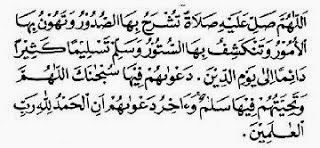 اَللّٰهُمَّ صَلِّ عَلَيْهِ صَلَاةً تُشْرَحُ بِهَا الصُّدُوْرُ وَتَهُوْنُ بِهَا
الْاُمُوْرُ وَتَنْكَشِفُ بِهَا السُّتُوْرُ وَسَلِّمْ تَسْلِيْمًا كَثِيْرًا
دَائِمًا اِلَى يَوْمِ الدِّيْنِ . دَعْوٰىهُمْ فِيْهَا سُبْحٰنَكَ اللّٰهُمَّ
وَتَحِيَّتُهُمْ فِيْهَا سَلٰمٌ وَءَاخِرُ دَعْوٰىهُمْ اَنِ الْحَمْدُ لِلّٰهِ رَبِّ
الْعٰلَمِيْنَ .